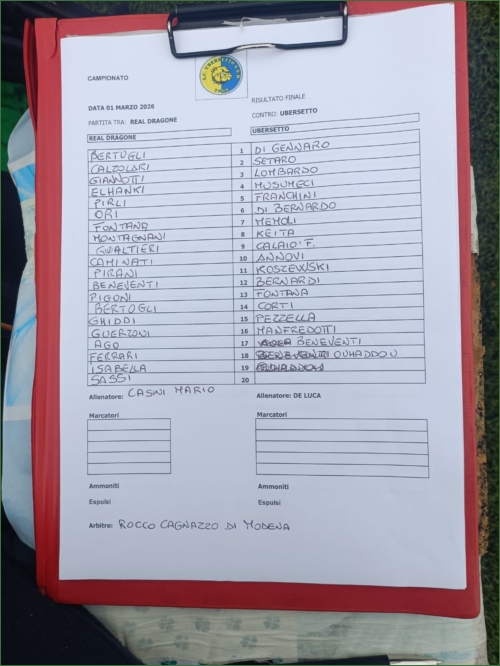 CAMPIONATO
RISULTATO FINALE
DATA 01 MARZO 2026
PARTITA TRA: REAL DRAGONE CONTRO: UBERSETTO
REAL DRAGONE UBERSETTO
BERTUGLI 1 DI GENNARO
CALZOLARI 2 SETARO
GIANNOTTI 3 LOMBARDO
ELHANKI 4 MUSUMECI
PIRLI 5 FRANCHINI
ORI 6 DI BERNARDO
FONTANA 7 MEMOLI
MONTAGNANI 8 KEITA
GUALTIERI 9 CALAIO' F.
CAMINATI 10 ANNOVI
PIRANI 11 KOSZEWSKI
BENEVENTI 12 BERNARDI
PIGONI 13 FONTANA
BERTOGLI 14 CORTI
GHIDDI 15 PEZZELLA
GUERZONI 16 MANFREDOTTI
AGO 17 BENEVENTI
FERRARI 18 OUHADDOU
ISABELLA 19
SASSI 20
Allenatore: CASINI MARIO Allenatore: DE LUCA
Marcatori Marcatori
Ammoniti Ammoniti
Espulsi Espulsi
Arbitro: ROCCO CAGNAZZO DI MODENA